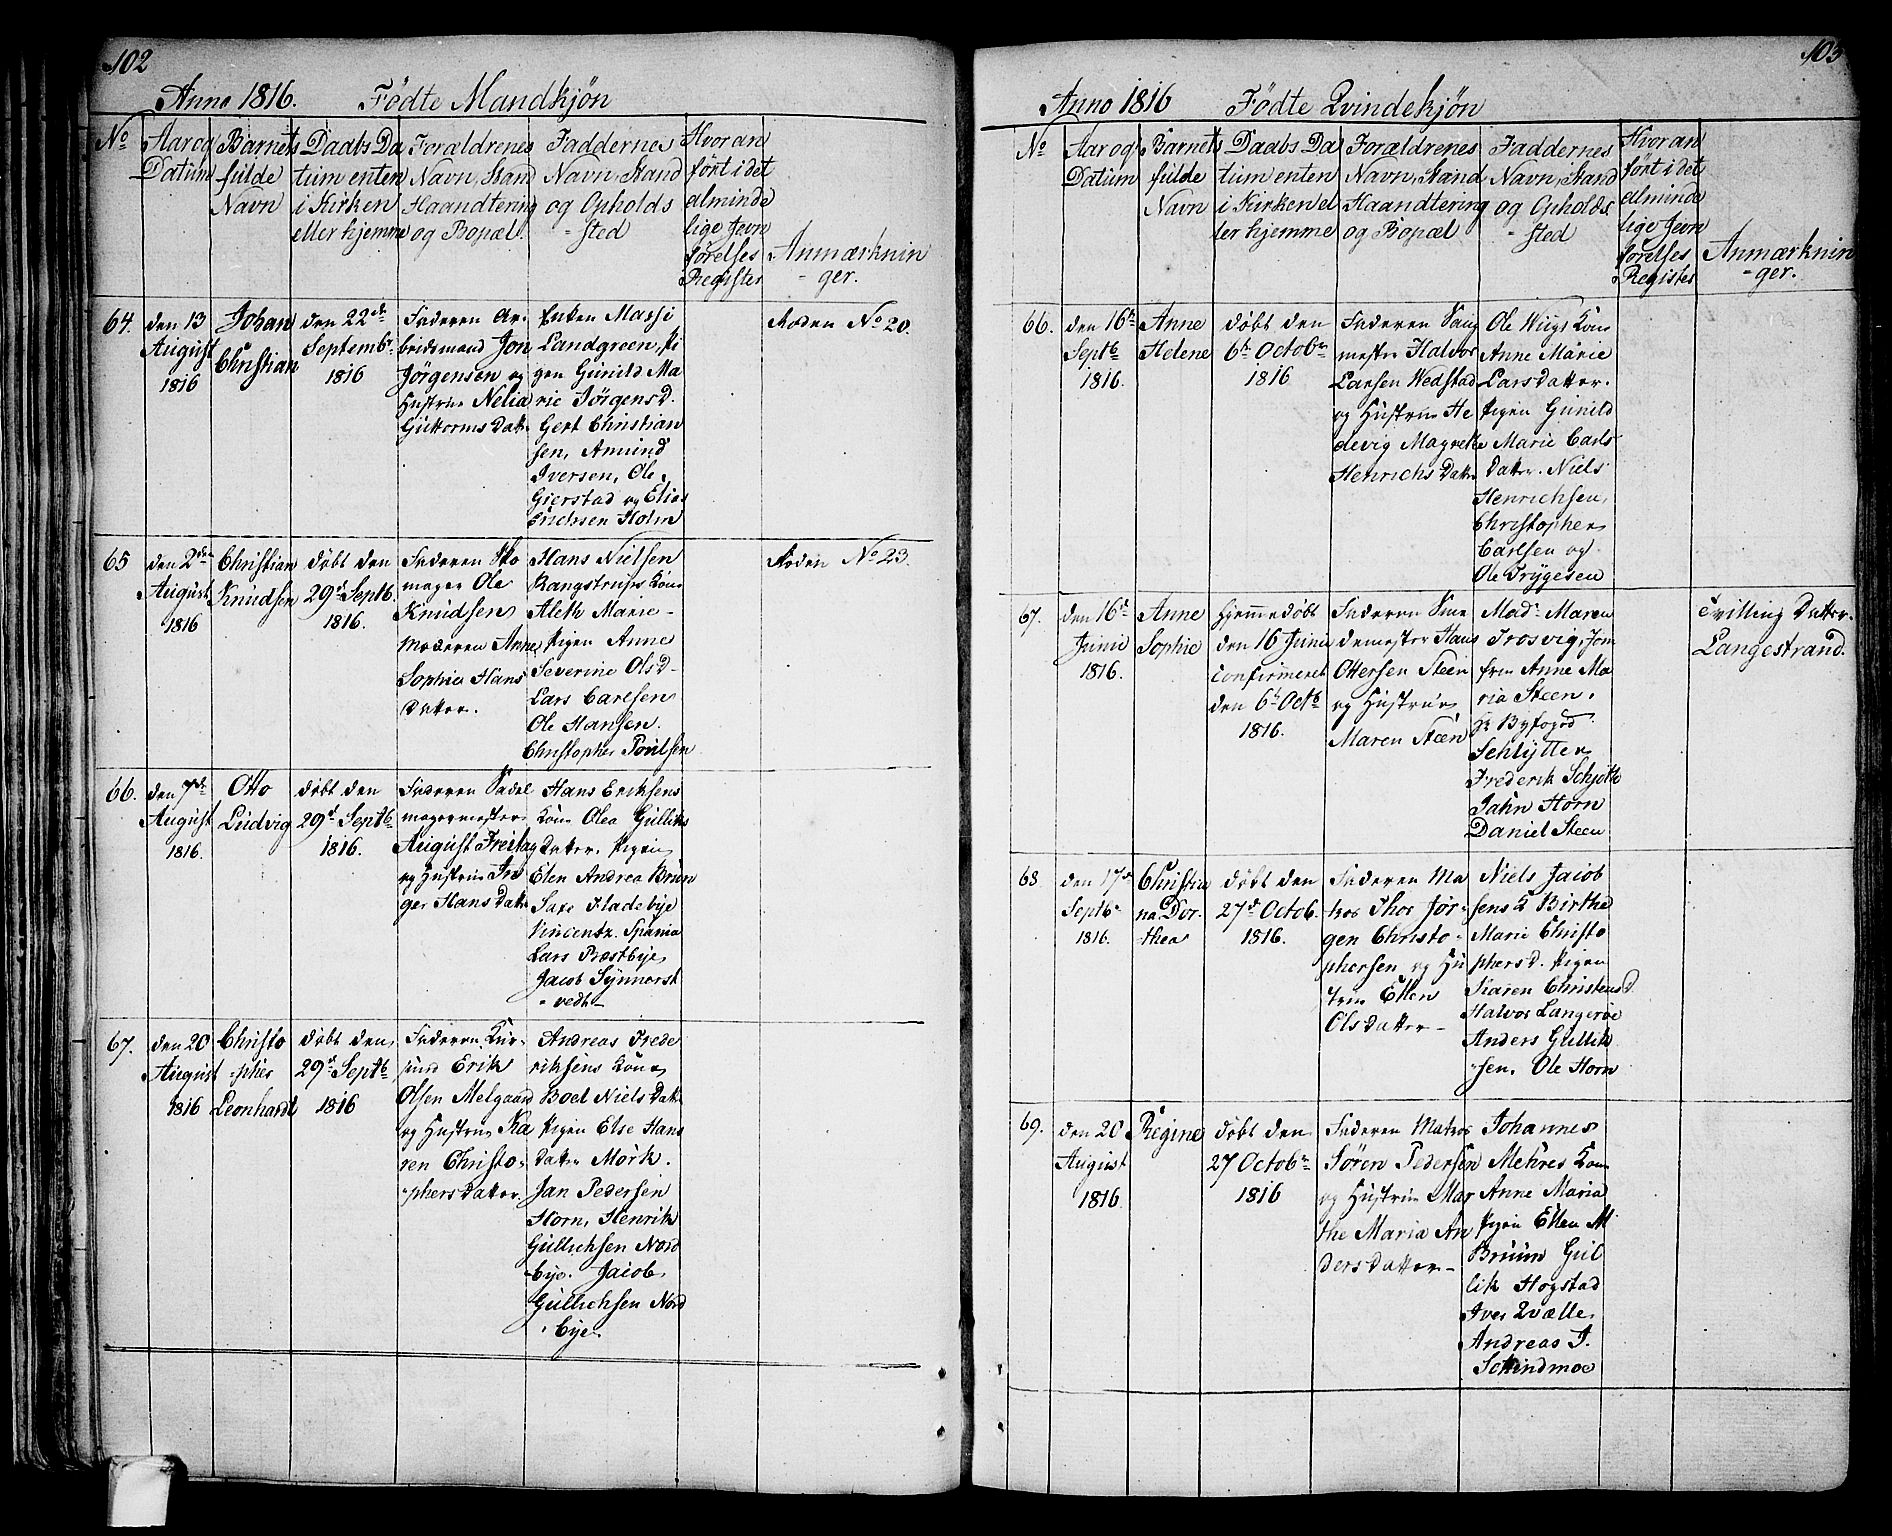 102
Anno 1816. Födte Mandkjön
No
Aar og
Datum
Barnets
fulde
Navn
Daabs Da
tum enten
i Kirken
eller hjemme
Forældrenes
Navn, Stand
Haandtering
og Bopæl.
Faddernes
Navn, Stand
og Opholds
sted
Hvor an
fört i det
alminde
lige Jevn
förelses
Register
Anmærknin
ger.
64.
den 13
August
1816
Johan
Christian
den 22de
Septembr
1816
Faderen Ar-
beidsmand Jon
Jörgensen og
Hustrue Nelia
Guttorms Datr
Enken Massi
Landgreen, Pi
gen Gunild Ma
rie Jörgensd.
Gert Christian
sen, Amund
Iversen, Ole
Gierstad og Elias
Erichsen Holm
Roden No 20.
65
den 2den
August
1816
Christian
Knudsen
döbt den
29d Septb.
1816.
Faderen Sko
mager Ole
Knudsen,
Moderen Anne
Sophie Hans
Datter.
Hans Nielsen
Rangstrups Kone
Aleth Marie
Pigen Anne
Severine Ols D.
Lars Carlsen
Ole Hansen.
Christopher Poulsen
Roden No 23.
66.
den 7de
August
1816.
Otto
Ludvig
döbt den
29d Septb
1816.
Faderen Sadel
magermester
August Freitag
og Hustrue In
ger Hans Datr
Hans Eriksens
Kone Olea Gulliks
Datter. Pigen
Elen Andrea Brun
Lars Fladebye
Vincentz. Spania
Lars Præstbye,
Jacob Synnerst
vedt
67.
den 20
August
1816
Christo
pher
Leonhardt
döbt den
29d Septb
1816
Faderen
Erik
Olsen Melgaard
og Hustrue Ka
ren Christo-
phers datter.
Andreas Frede
riksens Kone
Boel Niels Datr
Pigen Else Hans
datter Mörk.
Jan Pedersen
Horn, Henrik
Gullichsen Nord
bye. Jacob
Gullichsen Nord
bye
103
Anno 1816 Födte Qvindekjön
No
Aar og
Datum
Barnets
fulde
Navn
Daabs Da
tum enten
i Kirken el
ler hjemme
Forældrenes
Navn, Stand
Haandtering
og Bopæl
Faddernes
Navn, Stand
og Opholds
sted
Hvor an
fört i det
alminde
lige Jevn
förelses
Register
Anmærknin
ger.
66.
den 16d
Septb
1816.
Anne
Helene
döbt den
6t Octobr
1816
Faderen Snug
mester Halvor
Larsen Wedstad
og Hustrue He
devig Magrethe
Henrichs Datter
Ole Wiigs Kone
Anne Marie
Lars datter.
Pigen Gunild
Marie Carls
Datter. Niels
Henrichsen,
Christopher
Carlsen og
Ole Trygesen
67.
den 16d
Junii
1816.
Anne
Sophie
hjemmedöbt
den 16 Junii
Confirmeret
den 6t Octb
1816.
Faderen Sme
demester Hans
Ottersen Steen
og Hustrue
Maren Steen
Mad. Maren
Trosvig, Jom
frue Anne Ma
ria Steen.
Hr Byfoged
Schlytter,
Frederik Schjöth
Jahn Horn
Daniel Steen
Tvilling Datter.
Langestrand.
68
den 17d
Septbr
1816.
Christia
na Dor-
thea
döbt den
27d Octob.
1816.
Faderen Ma
tros Thor Jör-
gen Christo-
phersen og Hu
strue Ellen
Olsdatter
Niels Jacob
sens K Birthe
Marie Christo
phersd. Pigen
Karen Christensd
Halvor Langeröe
Anders Gullik
sen, Ole Horn
69.
den 20
August
1816.
Regine
döbt den
27 Octobr
1816
Faderen Matros
Sören Pedersen
og Hustrue Mar
the Maria An
dersdatter
Johannes
Mehres Kone
Anne Maria
Pigen Ellen M.
Bruun Gul
lik Hogstad
Iver Qvælle,
Andreas J.
Sollindmoe